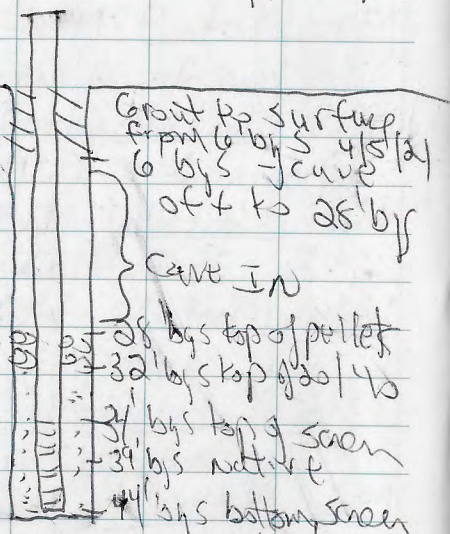 Grout to surface
from 6 bgs 4/5/21
6 bgs - cave
of + to 28' bgs
Cave IN
28' bgs top of pellets
32' bgs top of 20/40
34' bgs top of screen
39' bgs native
44' bgs bottom screen